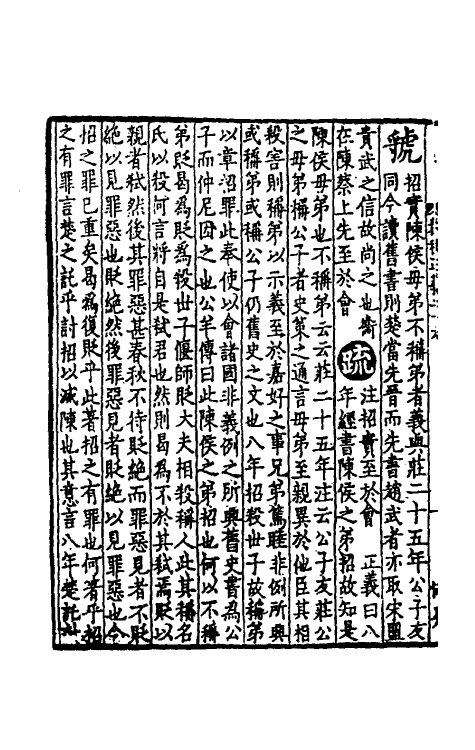 虢招實陳侯母弟不稱弟者義與莊二十五年公子友
同今讀舊書則楚當先晉而先書趙武者亦取宋盟
貴武之信故尚之也衛
在陳蔡上先至於會
疏注招實至於會 正義曰八
年經書陳侯之弟招故知是
陳侯母弟也不稱弟云云莊二十五年注云公子友莊公
之母弟稱公子者史策之通言母弟至親異於他臣其相
殺害則稱弟以示義至於嘉好之事兄弟篤睦非例所與
或稱弟或稱公子仍舊史之文也八年招殺世子故稱弟
以章沼罪此奉使以會諸國非義例之所興舊史書為公
子而仲尼因之也公羊傳曰此陳侯之弟招也何以不稱
弟貶曷為貶為殺世子偃師貶大夫相殺稱人此其稱名
氏以殺何言將自是弒君也然則曷為不於其弒焉貶以
親者弒然後其罪惡甚春秋不待貶絕而罪惡見者不貶
絕以見罪惡也貶絕然後罪惡見者貶絕以見罪惡也今
招之罪已重矣曷為復貶乎此著招之有罪也何著乎招
之有罪言楚之託乎討招以滅陳也其意言八年楚託